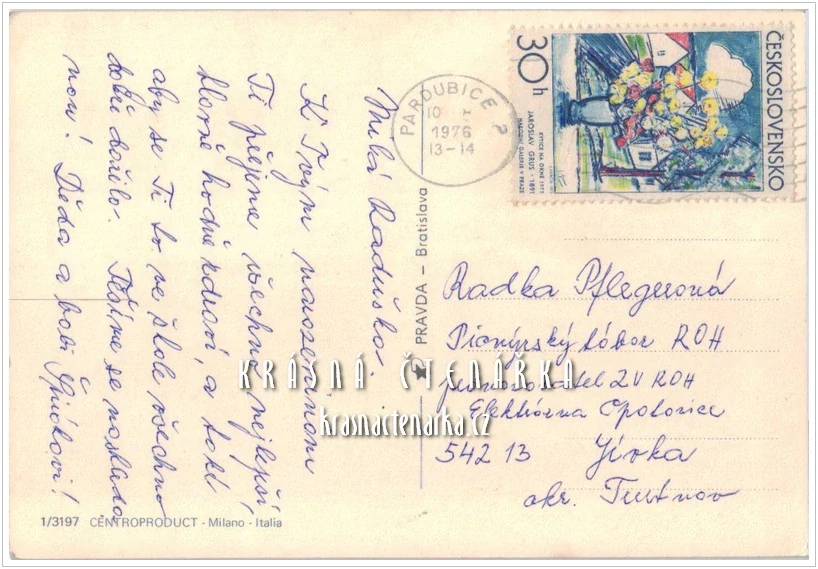 Milá Raduško!
K Tvým narozeninám
Ti přejeme všechno nejlepší,
hlavně hodně zdraví, a také
aby se Ti to ve škole všechno
dobře dařilo. Těšíme se na shleda
nou! Děda a babi
1/3197 CENTROPRODUCT - Milano - Italia
PRAVDA – Bratislava
PARDUBICE 2
10
1976
13-14
ČESKOSLOVENSKO
30h
KYTICE NA OKNĚ
JAROSLAV GRUS · 1891
NÁRODNÍ GALERIE V PRAZE
Radka Pflegerová
Pionýrský tábor ROH
provozovatel ZV ROH
Elektrárna Opatovice
542 13 Jívka
okr. Trutnov
KRÁSNÁ ČTENÁŘKA
krasnactenarka.cz